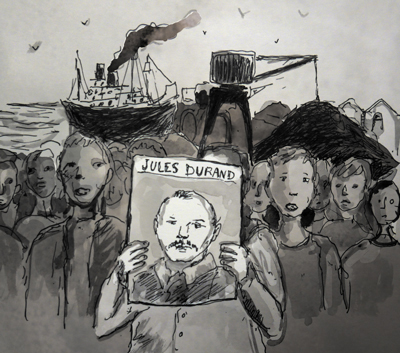 JULES DURAND